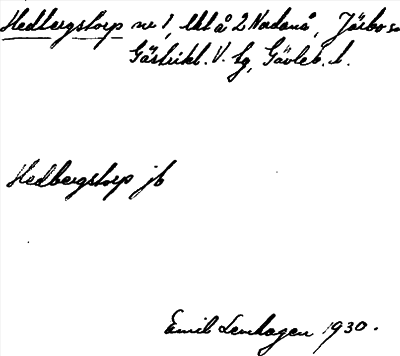 Hedbergstorp nr 1, litt å 2 Nordanå, Järbo sn
Gästrikl. V. tg, Gävleb. l.
Hedbergstorp jb
Emil Lenhagen 1930.